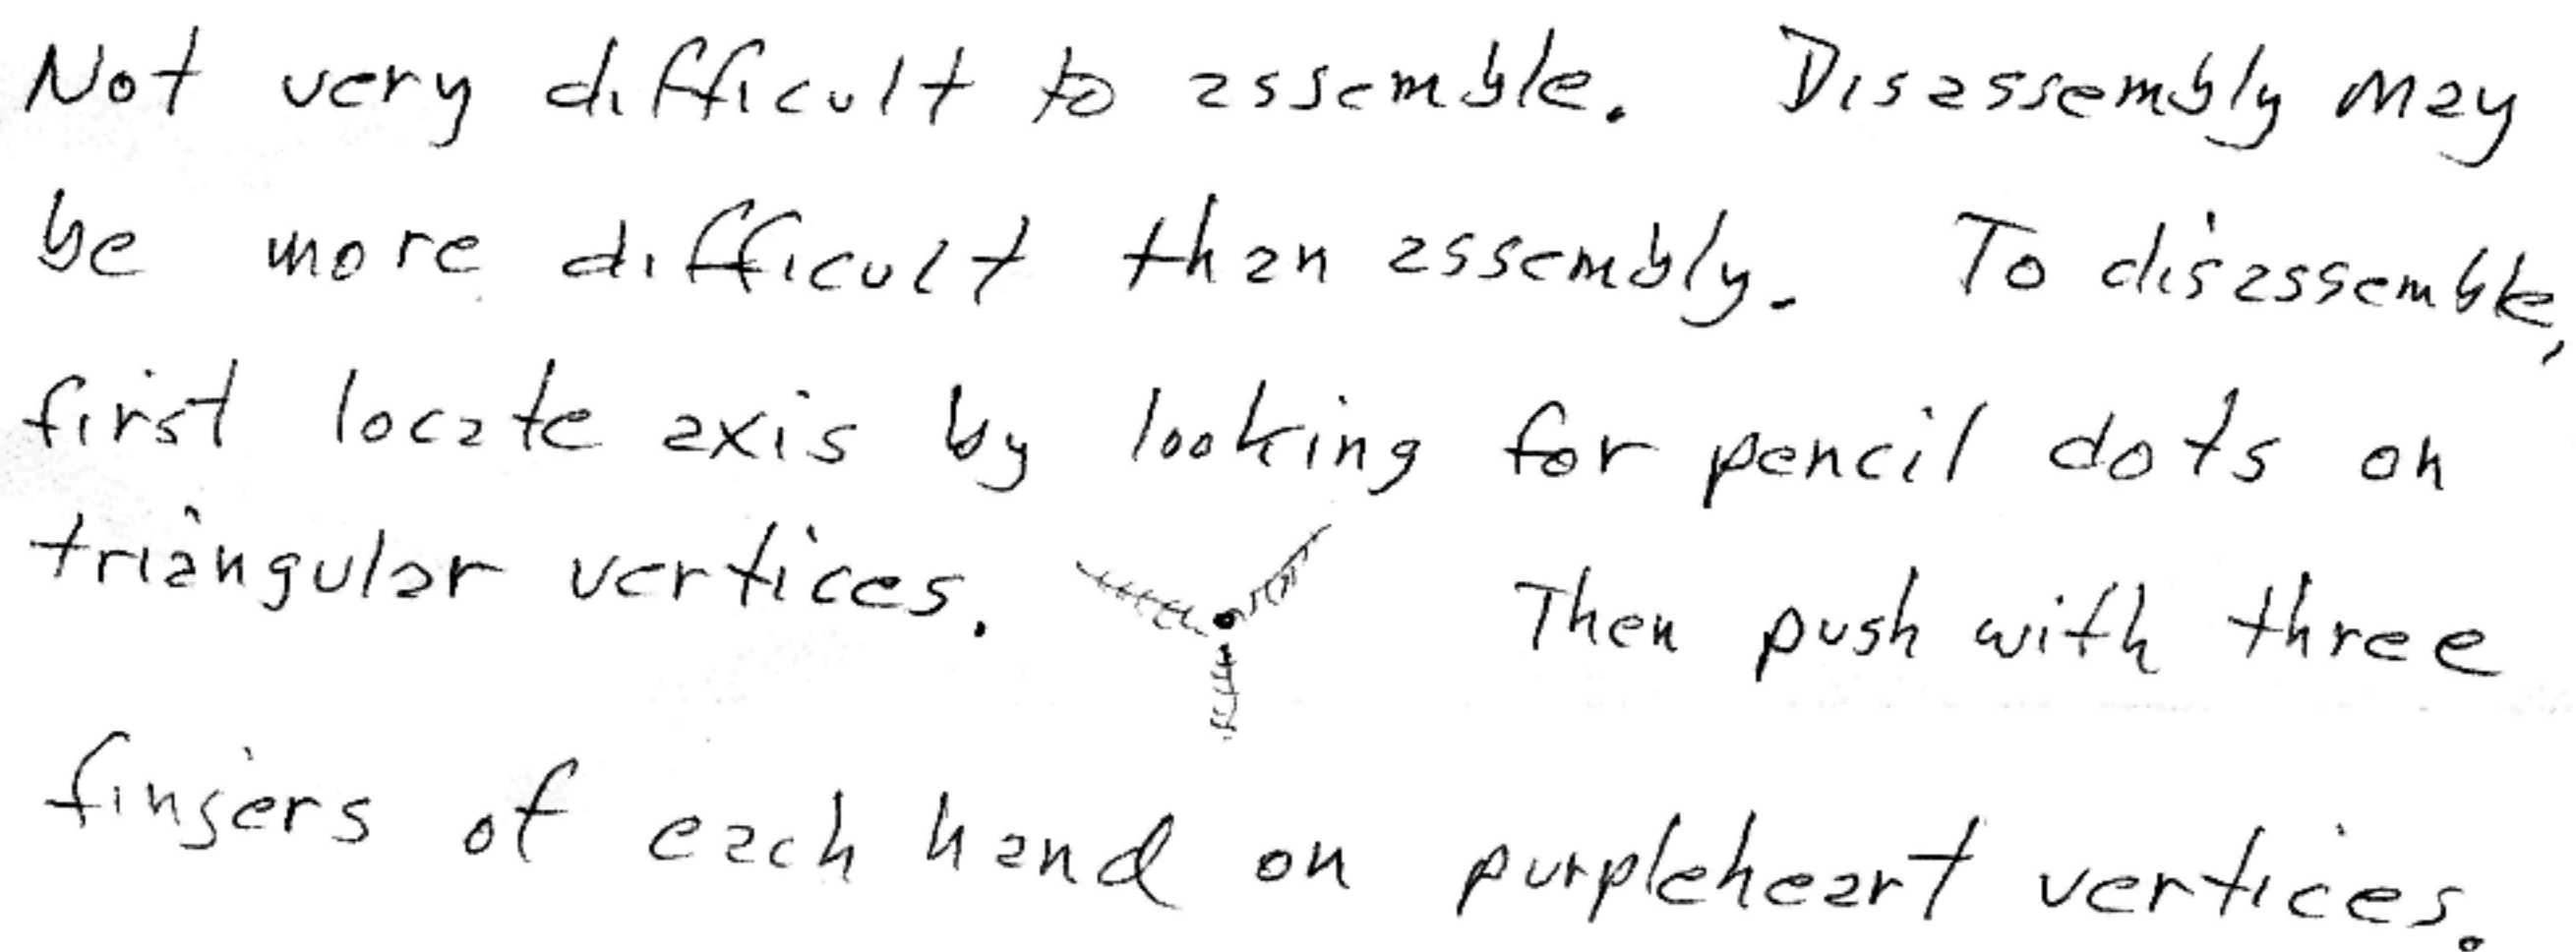 Not very difficult to assemble. Disassembly may
be more difficult than assembly. To disassemble,
first locate axis by looking for pencil dots on
triangular vertices. Then push with three
fingers of each hand on purpleheart vertices.